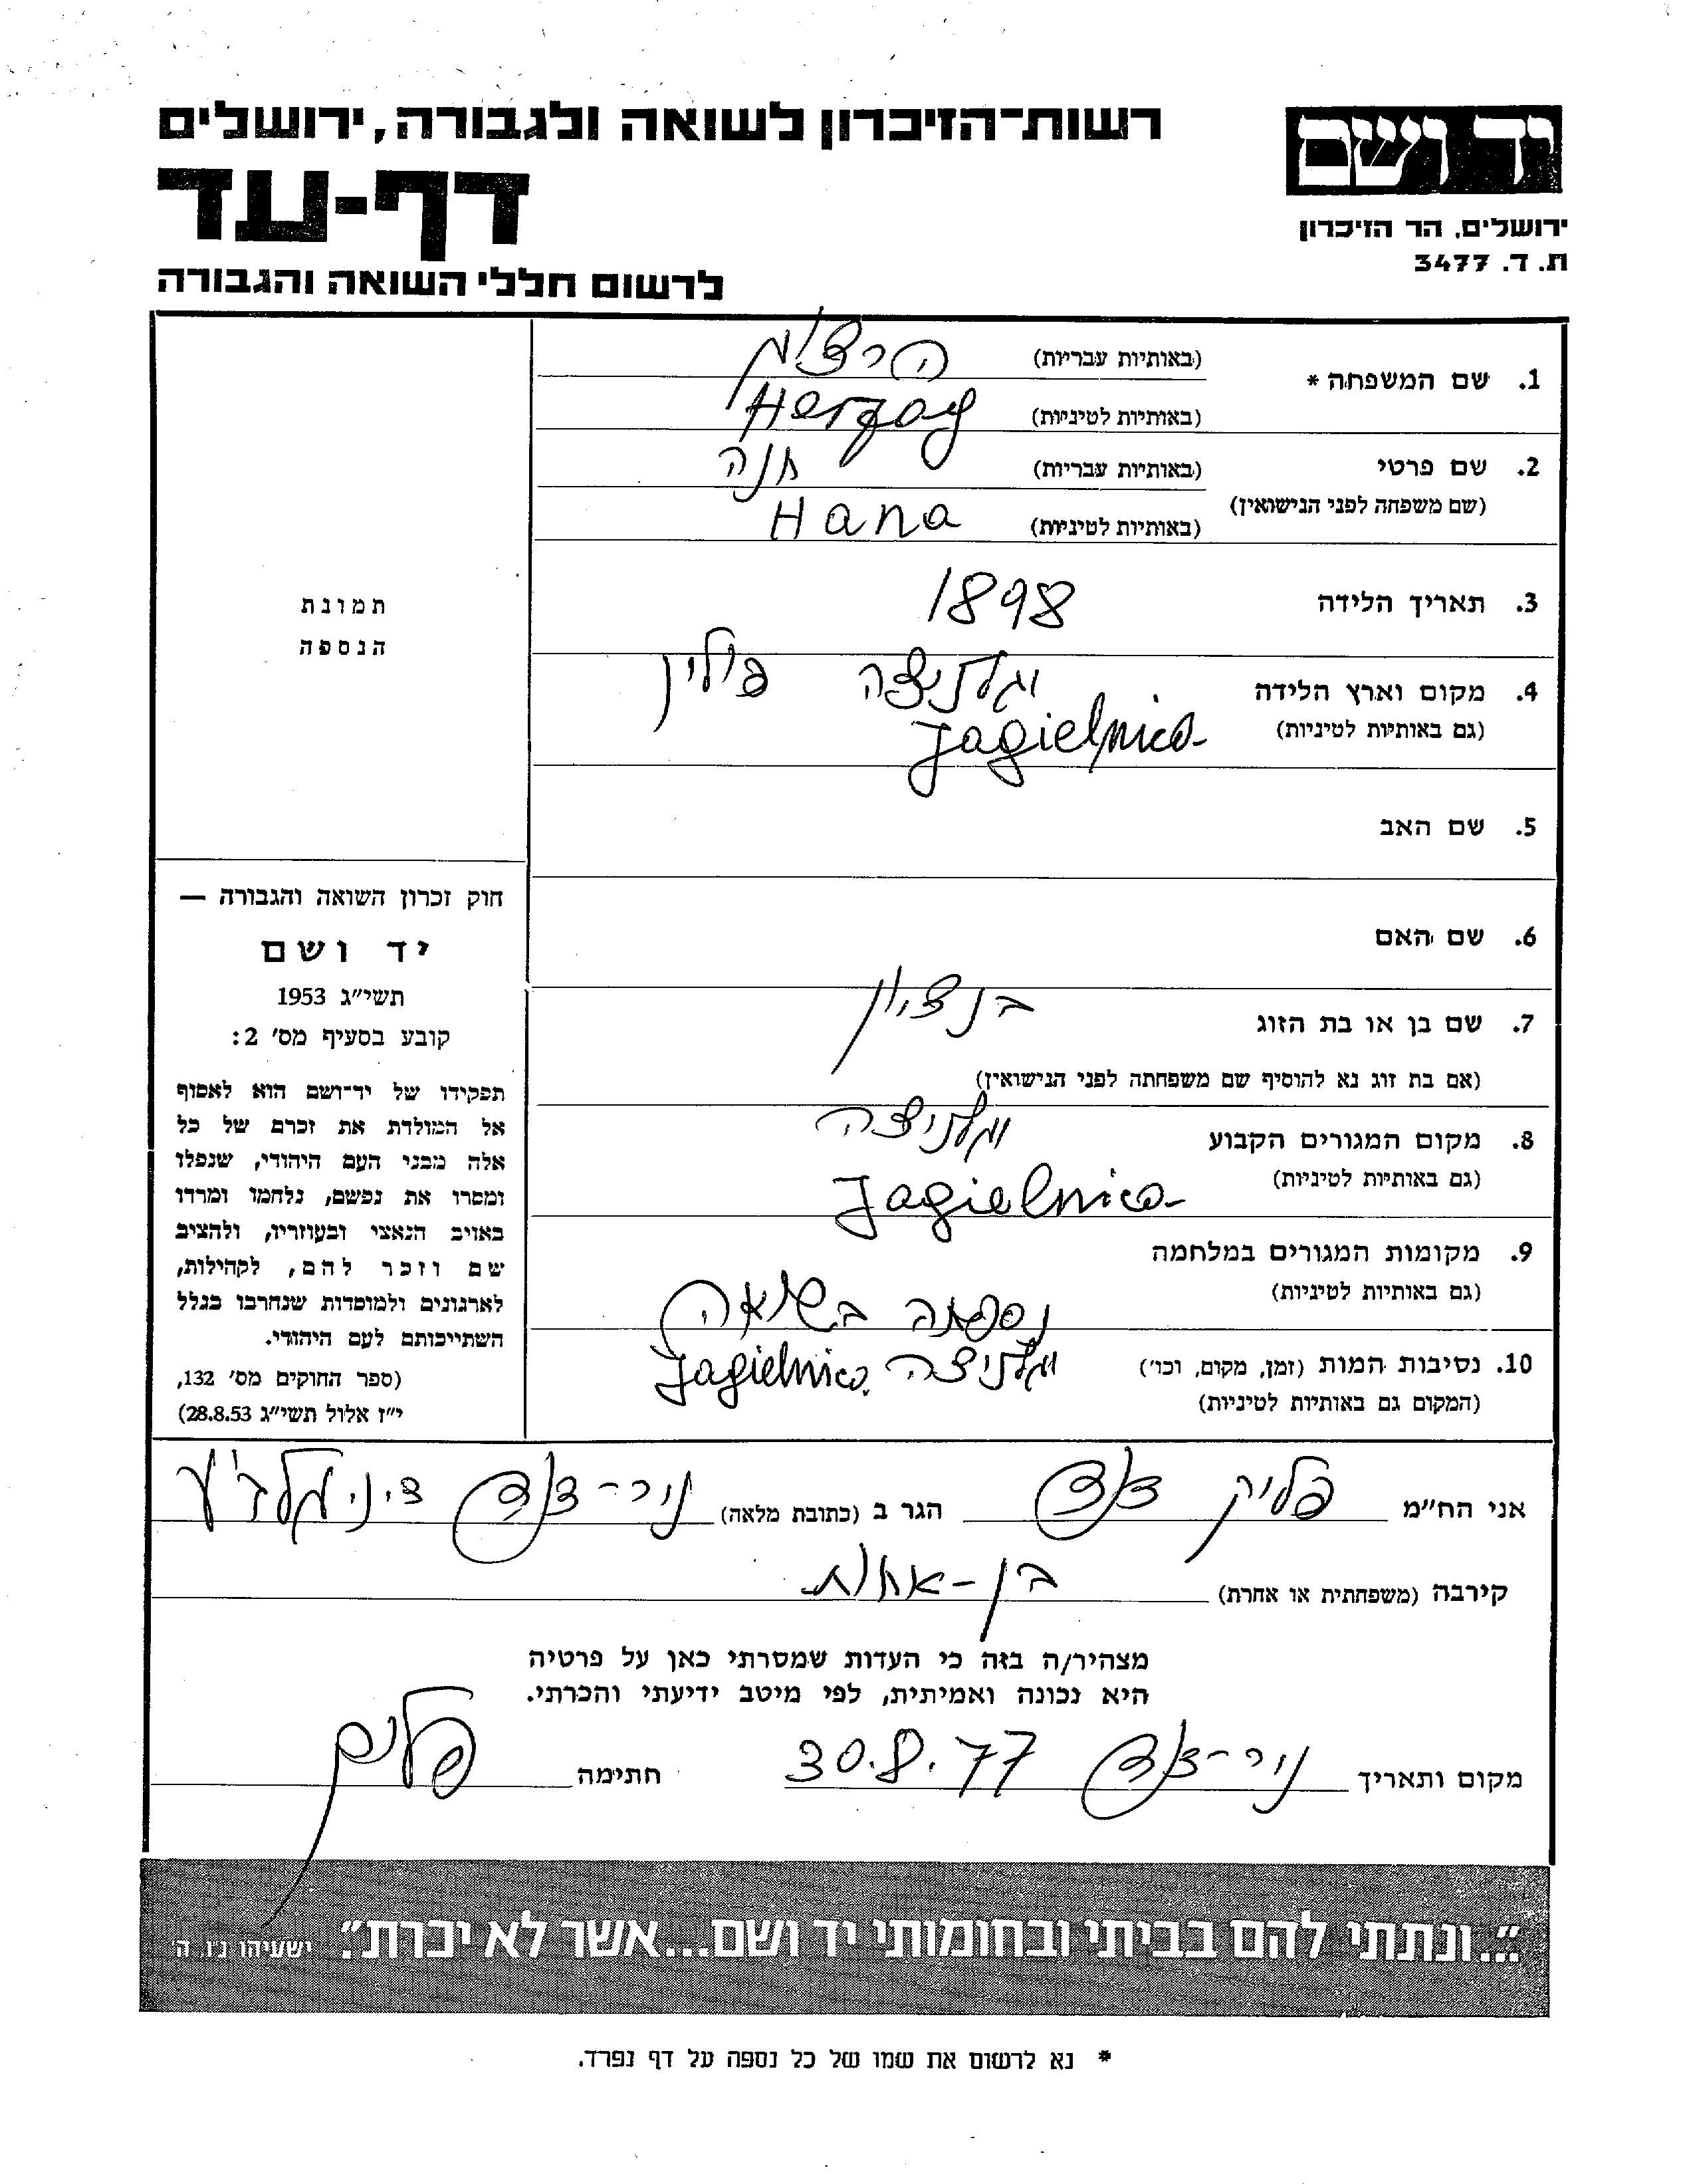 רשות־הזיכרון לשואה ולגבורה, ירושלים
יד ושם
דף-עד
ירושלים, הר הזיכרון
ת. ד. 3477
לרשום חללי השואה והגבורה
1. שם המשפחה * (באותיות עבריות) הרצוג
(באותיות לטיניות) Herzog
2. שם פרטי (באותיות עבריות) חנה
(שם משפחה לפני הנישואין)
(באותיות לטיניות) Hana
3. תאריך הלידה 1898
4. מקום וארץ הלידה יגלניצה פולין
(גם באותיות לטיניות) Jagielnica
5. שם האב
6. שם האם
7. שם בן או בת הזוג בן ציון
(אם בת זוג נא להוסיף שם משפחתה לפני הנישואין)
8. מקום המגורים הקבוע יגלניצה
(גם באותיות לטיניות) Jagielnica
9. מקומות המגורים במלחמה
(גם באותיות לטיניות)
נספתה בשואה
10. נסיבות המות (זמן, מקום, וכו') יגלניצה Jagielnica
(המקום גם באותיות לטיניות)
תמונת
הנספה
חוק זכרון השואה והגבורה —
יד ושם
תשי"ג 1953
קובע בסעיף מס' 2:
תפקידו של יד־ושם הוא לאסוף
אל המולדת את זכרם של כל
אלה מבני העם היהודי, שנפלו
ומסרו את נפשם, נלחמו ומרדו
באויב הנאצי ובעוזריו, ולהציב
שם וזכר להם, לקהילות,
לארגונים ולמוסדות שנחרבו בגלל
השתייכותם לעם היהודי.
(ספר החוקים מס' 132,
י"ז אלול תשי"ג 28.8.53)
אני הח"מ פליק דוד הגר ב (כתובת מלאה) ניר-דוד ד.נ. גלבוע
קירבה (משפחתית או אחרת) בן-אחות
מצהיר/ה בזה כי העדות שמסרתי כאן על פרטיה
היא נכונה ואמיתית, לפי מיטב ידיעתי והכרתי.
מקום ותאריך ניר-דוד 30.8.77 חתימה
"...ונתתי להם בביתי ובחומותי יד ושם...אשר לא יכרת". ישעיהו נ"ו, ה'
* נא לרשום את שמו של כל נספה על דף נפרד.